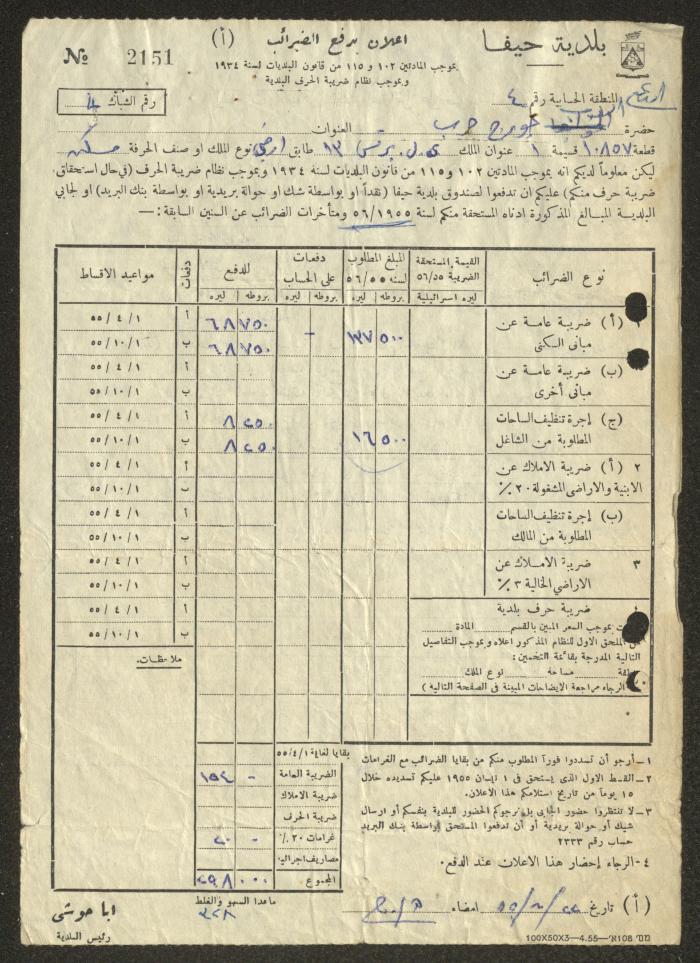 بلدية حيفا
اعلان بدفع الضرائب (أ)
№ 2151
بموجب المادتين ١٠٢ و ١١٥ من قانون البلديات لسنة ١٩٣٤
وبموجب نظام ضريبة الحرف البلدية
المنطقة الحسابية رقم ٤
رقم الشباك ٤
حضرة جورج حرب العنوان
قطعة ١٠٨٥٧ قسيمة ١ عنوان الملك ي. ل. برتس ١٣ طابق ارضي نوع الملك او صنف الحرفة مسكن
ليكن معلوماً لديكم انه بموجب المادتين ١٠٢ و ١١٥ من قانون البلديات لسنة ١٩٣٤ وبموجب نظام ضريبة الحرف (في حال استحقاق
ضريبة حرف منكم) عليكم ان تدفعوا لصندوق بلدية حيفا (نقداً او بواسطة شك او حوالة بريدية او بواسطة بنك البريد) او لجابي
البلدية المبالغ المذكورة ادناه المستحقة منكم لسنة ٥٦/١٩٥٥ ومتأخرات الضرائب عن السنين السابقة:—
نوع الضرائب | القيمة المستحقة الضريبة ٥٦/٥٥ ليره اسرائيلية | المبلغ المطلوب لسنه ٥٦/٥٥ بروطه ليره | دفعات على الحساب بروطه ليره | للدفع بروطه ليره | دفعات | مواعيد الاقساط
١ (أ) ضريبة عامة عن | ٦٨ ٧٥٠ | أ | ٥٥/٤/١
مباني السكنى | ١٣٧ ٥٠٠ | - | ٦٨ ٧٥٠ | ب | ٥٥/١٠/١
(ب) ضريبة عامة عن | أ | ٥٥/٤/١
مباني أخرى | ب | ٥٥/١٠/١
(ج) إجرة تنظيف الساحات | ٨ ٢٥٠ | أ | ٥٥/٤/١
المطلوبة من الشاغل | ١٦ ٥٠٠ | ٨ ٢٥٠ | ب | ٥٥/١٠/١
٢ (أ) ضريبة الاملاك عن | أ | ٥٥/٤/١
الابنية والاراضي المشغولة ٢٠٪ | ب | ٥٥/١٠/١
(ب) إجرة تنظيف الساحات | أ | ٥٥/٤/١
المطلوبة من المالك | ب | ٥٥/١٠/١
٣ ضريبة الاملاك عن | أ | ٥٥/٤/١
الاراضي الخالية ٣٪ | ب | ٥٥/١٠/١
ضريبة حرف بلدية | أ | ٥٥/٤/١
بموجب السعر المبين بالقسم المادة | ب | ٥٥/١٠/١
الملحق الاول للنظام المذكور اعلاه وبموجب التفاصيل
التالية المدرجة بقائمة التخمين:
مساحة نوع الملك
(الرجاء مراجعة الايضاحات المبينة في الصفحة التالية)
ملاحظات.
بقايا لغاية ٥٥/٤/١
الضريبة العامة - ١٥٤
ضريبة الاملاك
ضريبة الحرف
غرامات ٢٠٪ -
مصاريف اجرائية
المجموع
ماعدا السهو والغلط
١- أرجو أن تسددوا فوراً المطلوب منكم من بقايا الضرائب مع الغرامات
٢- القسط الاول الذي يستحق في ١ نيسان ١٩٥٥ عليكم تسديده خلال
١٥ يوماً من تاريخ استلامكم هذا الاعلان.
٣- لا تنتظروا حضور الجابي بل نرجوكم الحضور للبلدية بنفسكم أو ارسال
شيك أو حوالة بريدية أو أن تدفعوا المستحق بواسطة بنك البريد
حساب رقم ٢٣٣٣
٤- الرجاء إحضار هذا الاعلان عند الدفع.
(أ) تاريخ امضاء
ابا حوشي
رئيس البلدية
100X50X3—4.55—108מס׳ א